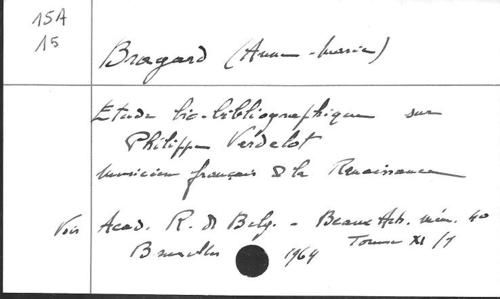 15A
15
Bragard (Anne-Marie)
Etude bio-bibliographique sur
Philippe Verdelot
musicien français de la Renaissance
Voir Acad. R. de Belg. - Beaux Arts. mém. 40
Bruxelles 1964 Tome XI/1